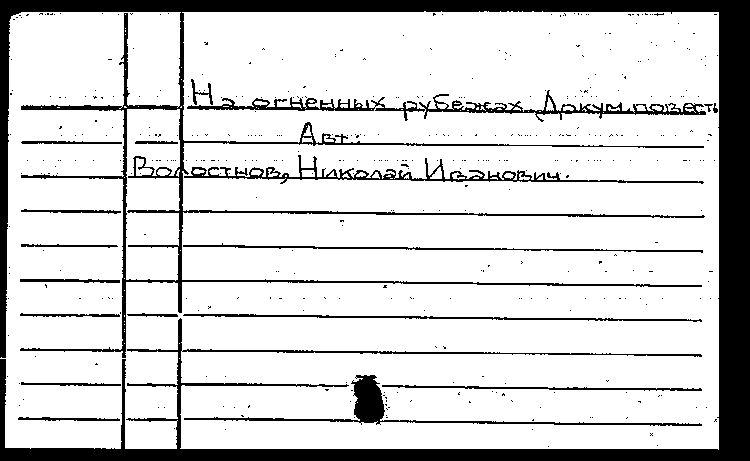 На огненных рубежах. Докум. повесть
Авт.:
Волостнов, Николай Иванович.